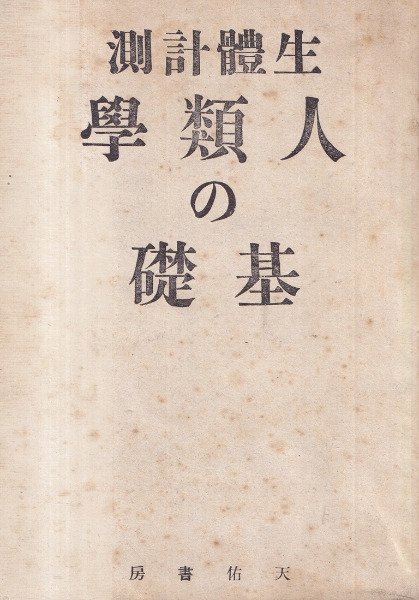 生體計測
人類學
の
基礎
天佑書房